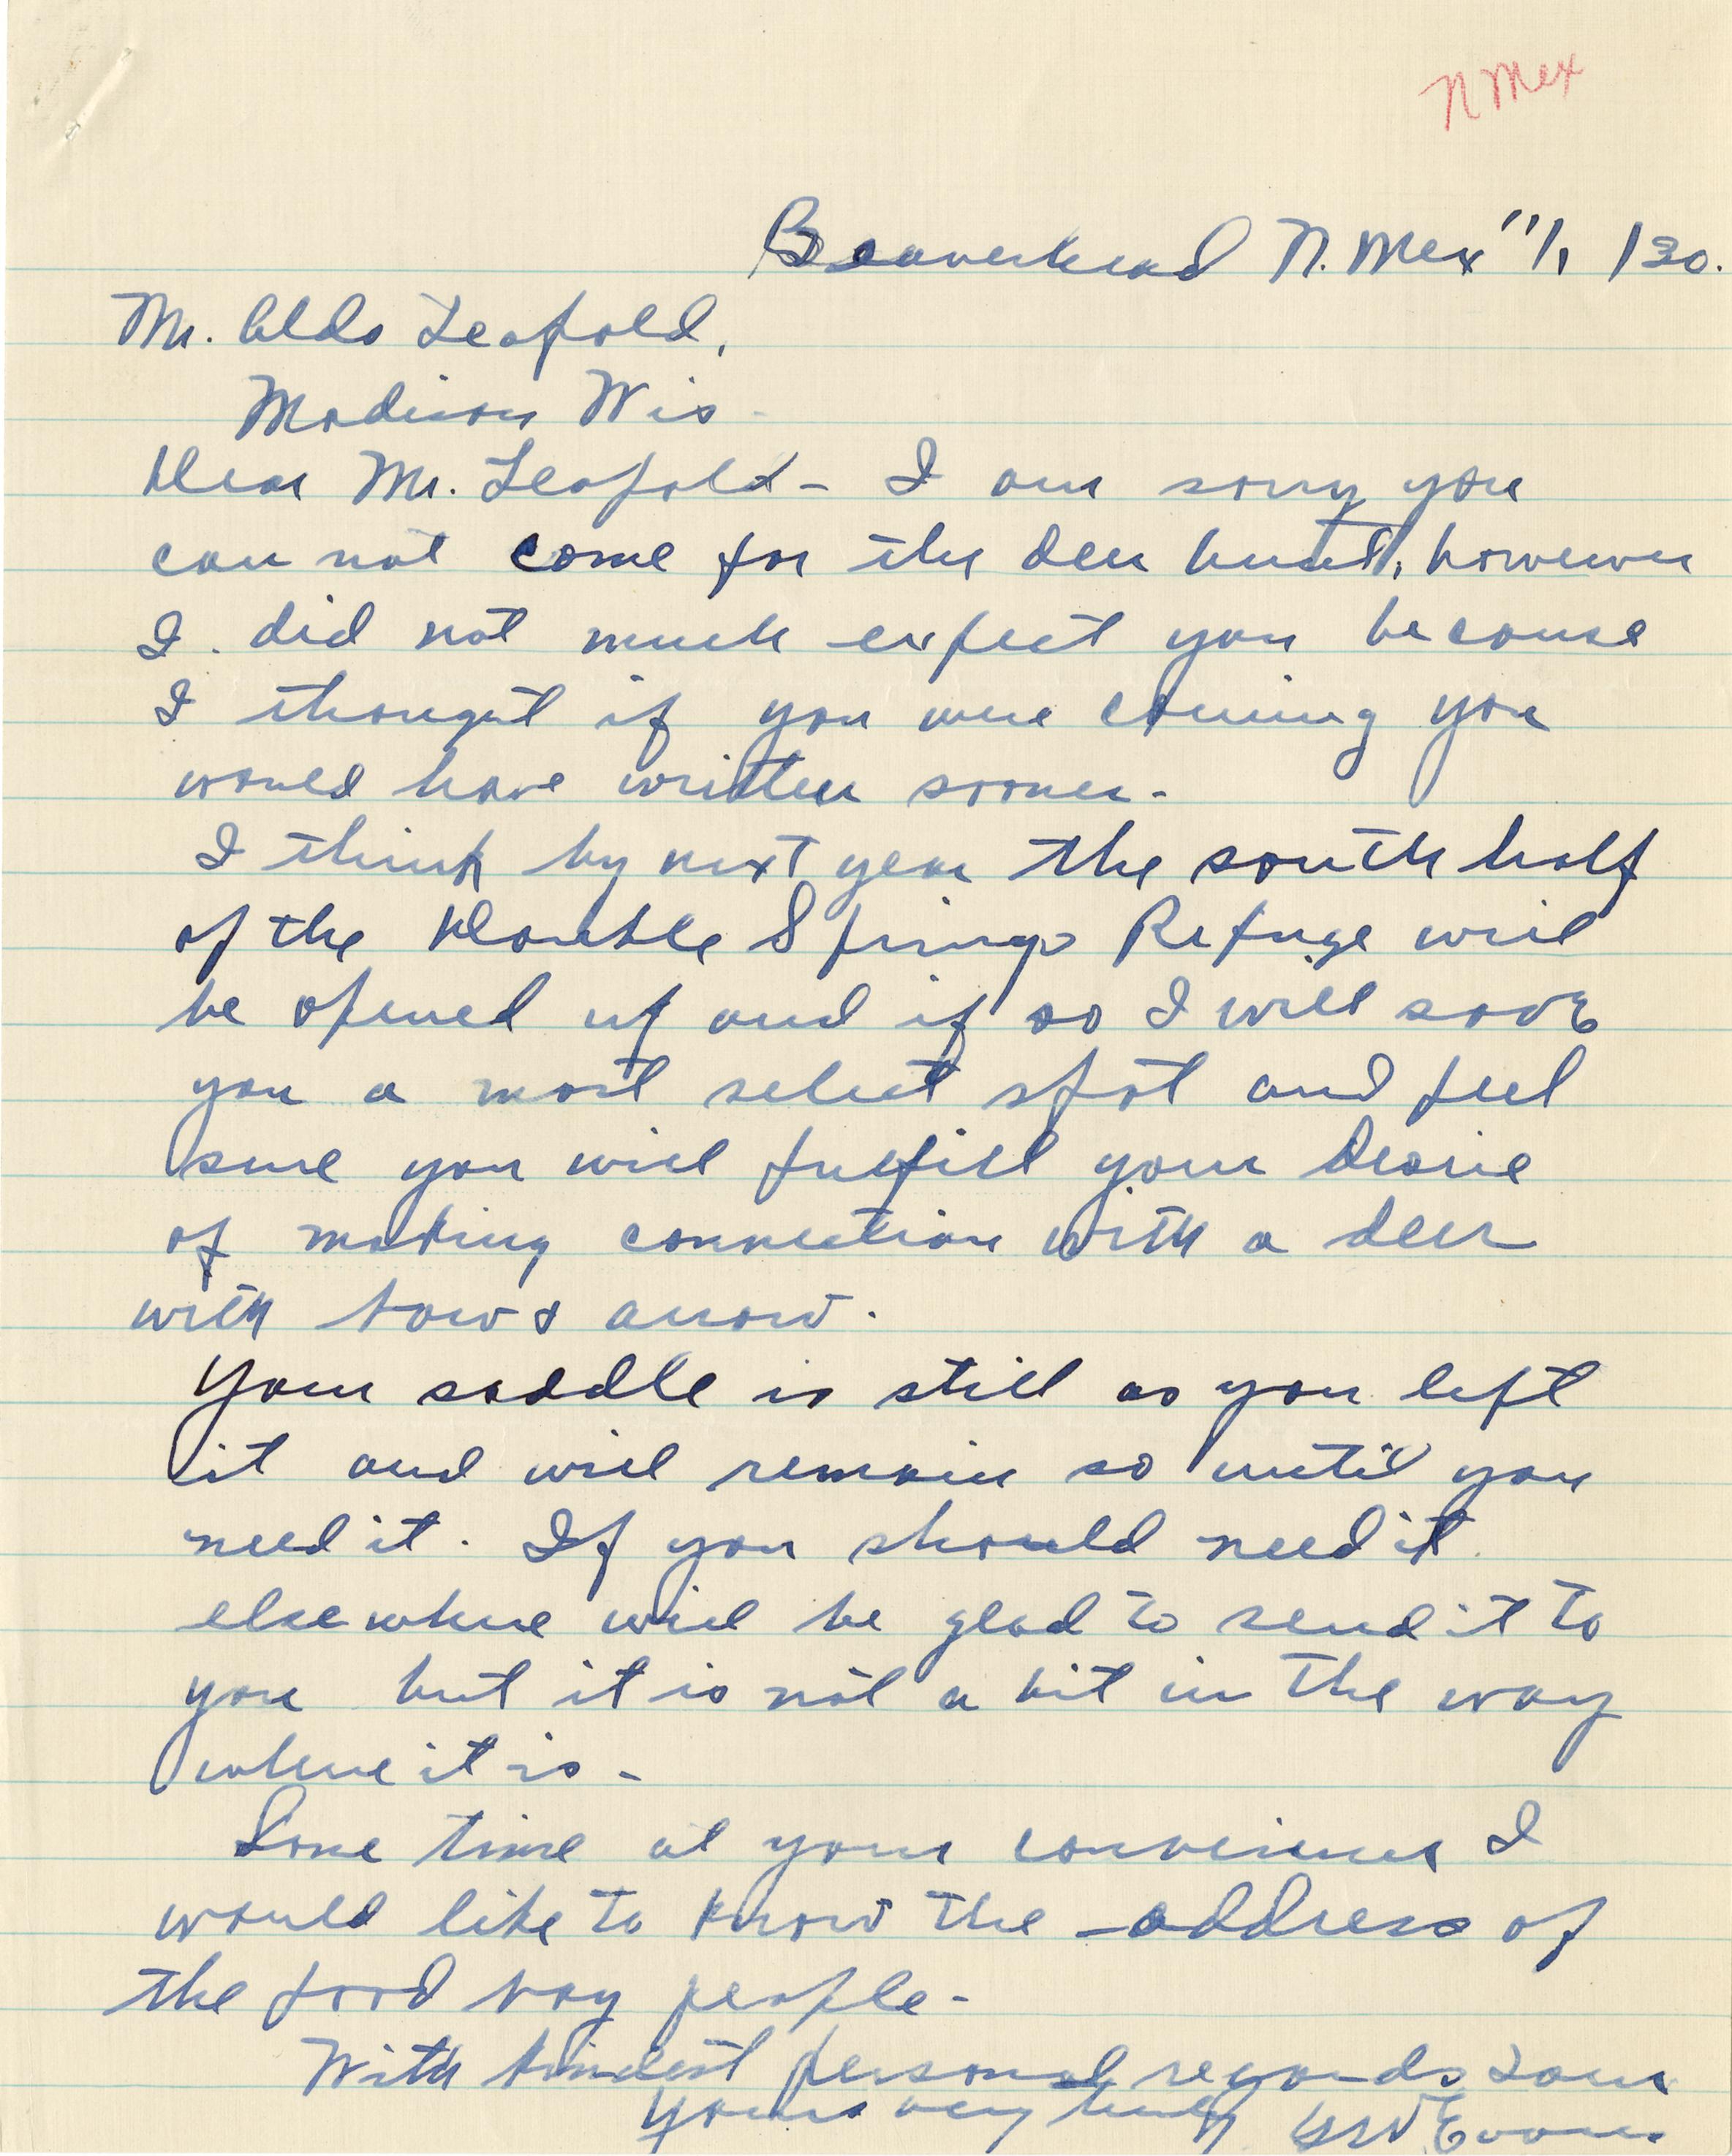 N Mex
Beaverhead N. Mex 11/1 /30.
Mr. Aldo Leopold,
Madison Wis.
Dear Mr. Leopold - I am sorry you
can not come for the deer hunt, however
I did not much expect you because
I thought if you were coming you
would have written sooner.
I think by next year the south half
of the Double Springs Refuge will
be opened up and if so I will save
you a most select spot and feel
sure you will fulfill your desire
of making connection with a deer
with bow & arrow.
Your saddle is still as you left
it and will remain so until you
need it. If you should need it
elsewhere will be glad to send it to
you but it is not a bit in the way
where it is -
Some time at your convenience I
would like to know the address of
the food bag people -
With kindest personal regards I am
Yours very truly G W Evans.